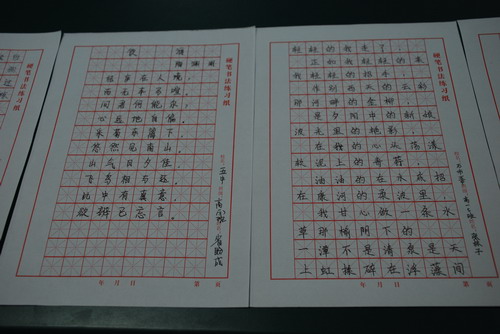 硬笔书法练习纸
饮 酒
陶渊明
结庐在人境，
而无车马喧。
问君何能尔？
心远地自偏。
采菊东篱下，
悠然见南山。
山气日夕佳，
飞鸟相与还。
此中有真意，
欲辨已忘言。
五中
年 月 日 第 页
硬笔书法练习纸
轻轻的我走了，
正如我轻轻的来
我轻轻的招手
作别西天的云彩
那河畔的金柳
是夕阳中的新娘
波光里的艳影
在我的心头荡漾
软泥上的青荇
油油的在水底招摇
在康河的柔波里
我甘心做一条水
草那榆阴下的
一潭不是清泉是天
上虹揉碎在浮藻间
年 月 日 第 页